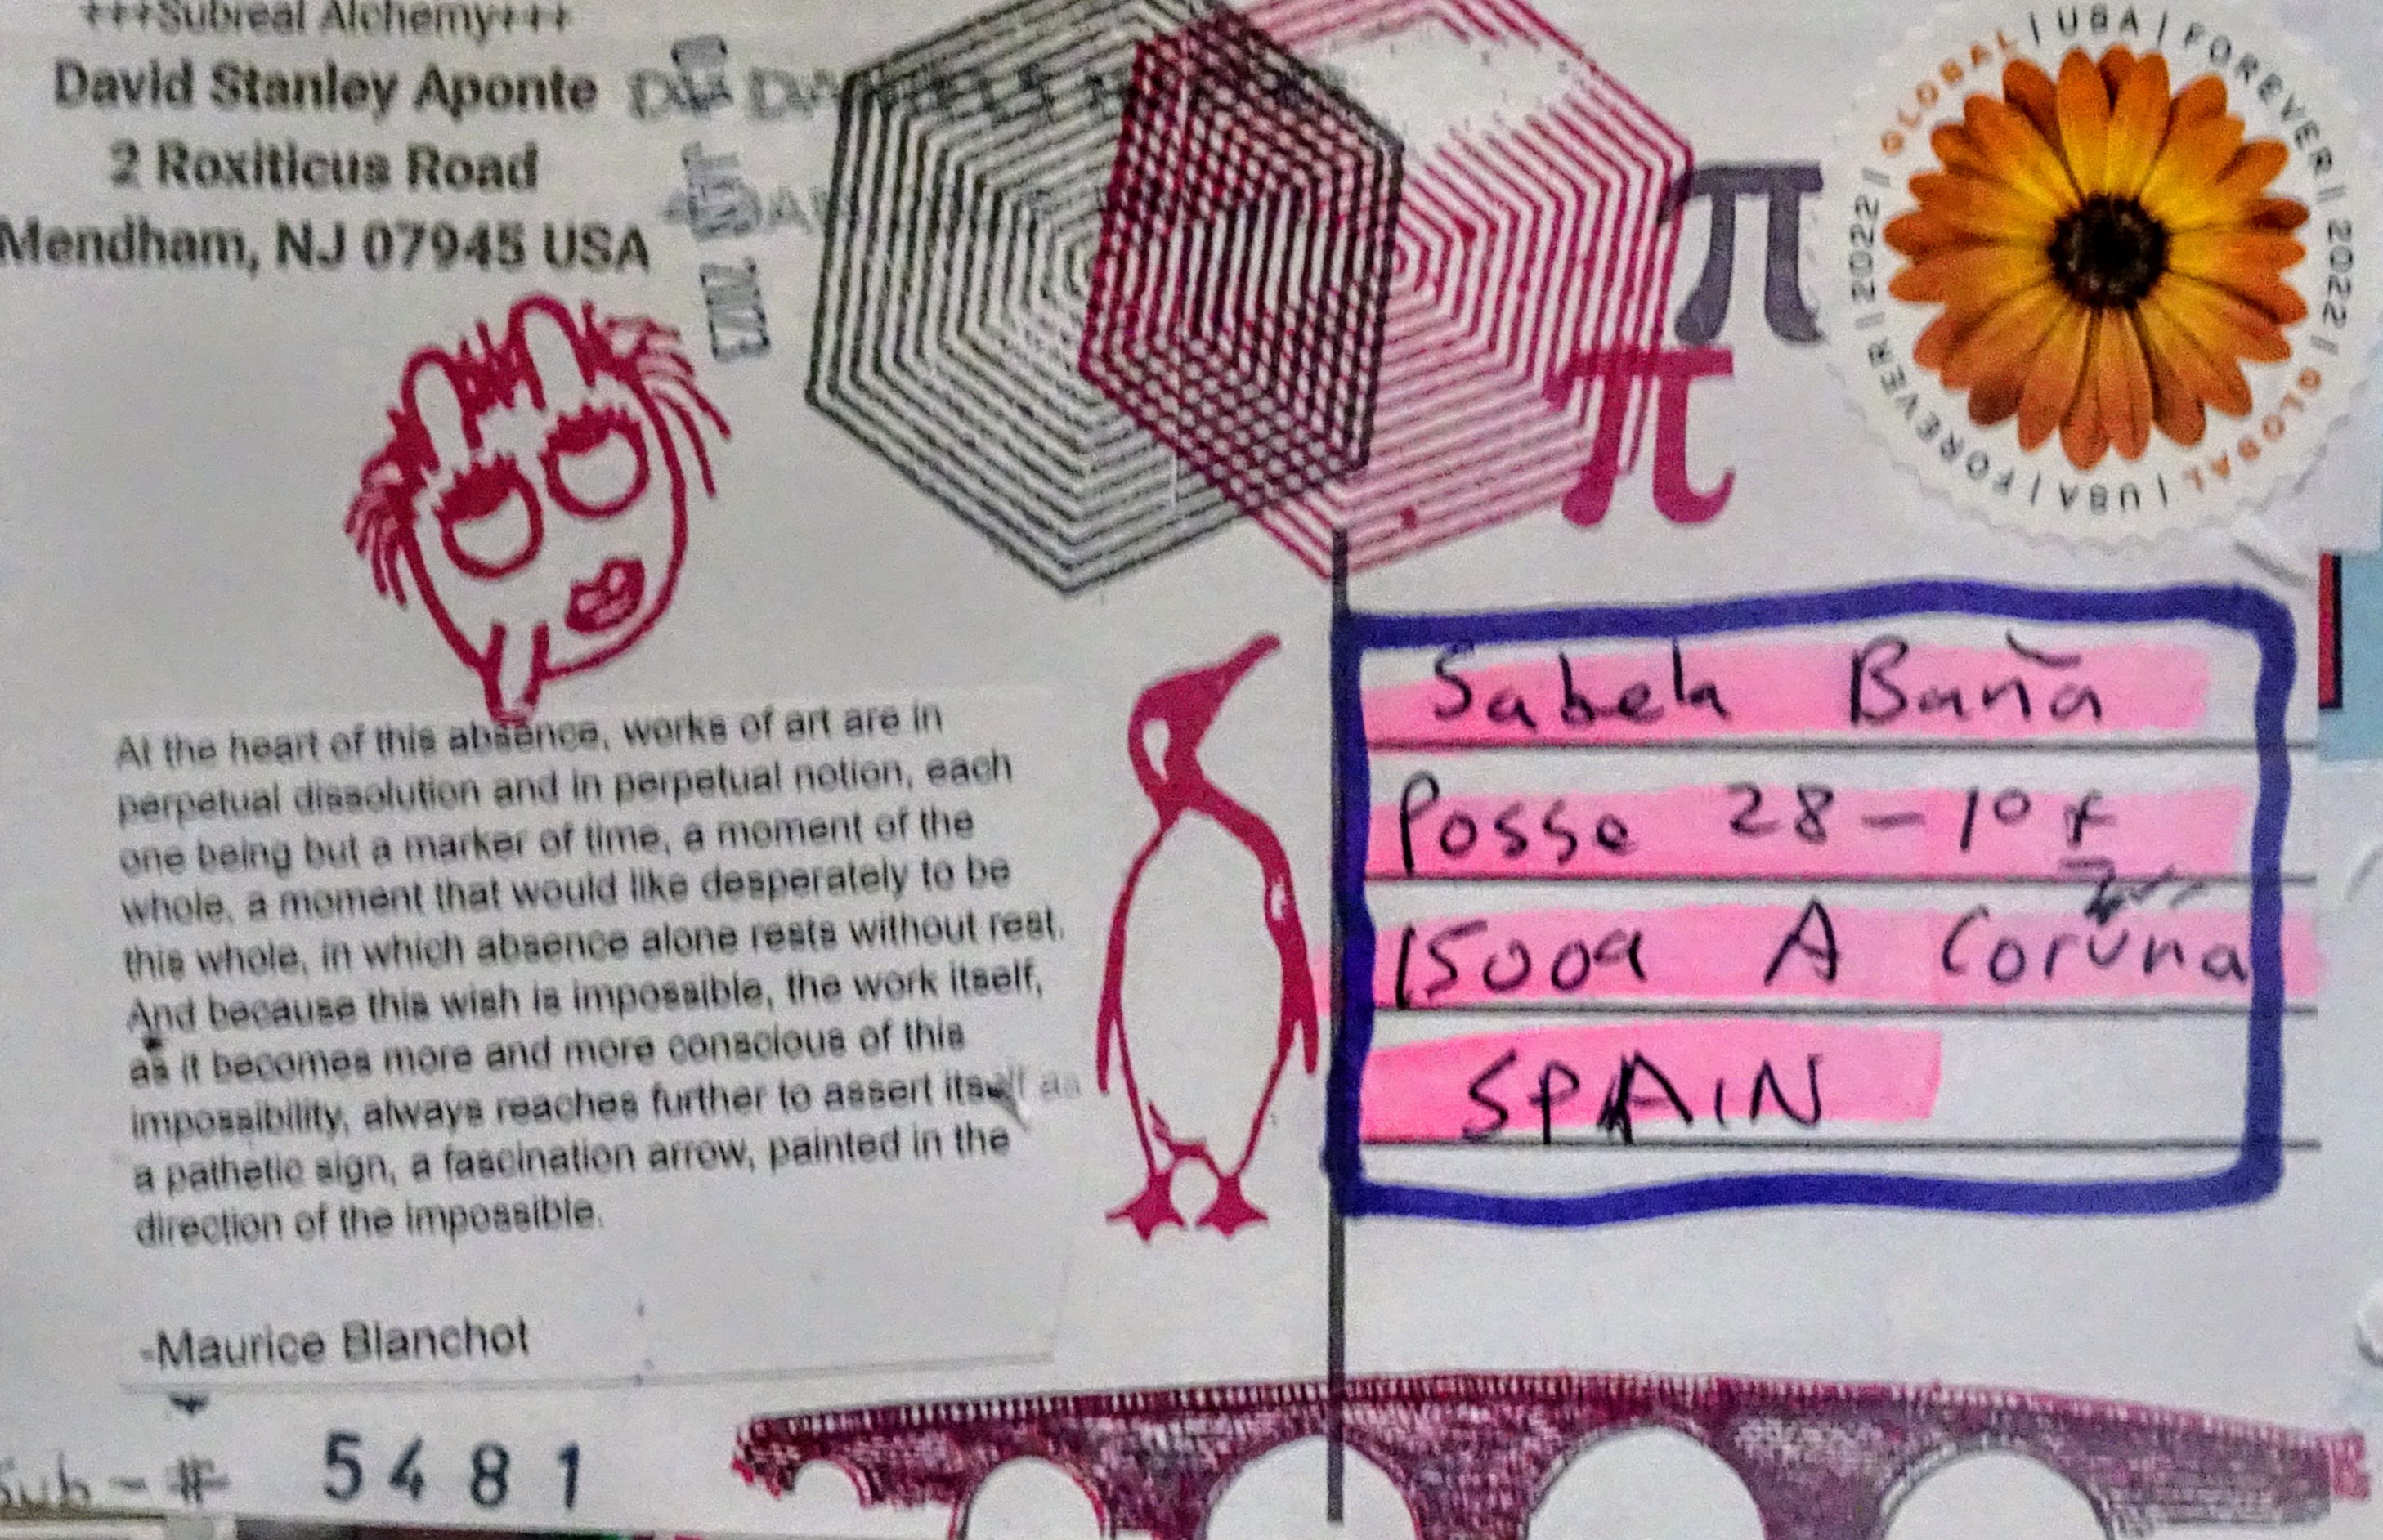 +++Subreal Alchemy+++
David Stanley Aponte
2 Roxiticus Road
Mendham, NJ 07945 USA
JAN 2023
π
π
GLOBAL | USA | FOREVER | 2022 | GLOBAL | USA | FOREVER | 2022 |
At the heart of this absence, works of art are in
perpetual dissolution and in perpetual notion, each
one being but a marker of time, a moment of the
whole, a moment that would like desperately to be
this whole, in which absence alone rests without rest.
And because this wish is impossible, the work itself,
as it becomes more and more conscious of this
impossibility, always reaches further to assert itself as
a pathetic sign, a fascination arrow, painted in the
direction of the impossible.
-Maurice Blanchot
Sub-# 5481
Sabela Baña
Posse 28-1º
15009 A Coruna
SPAIN